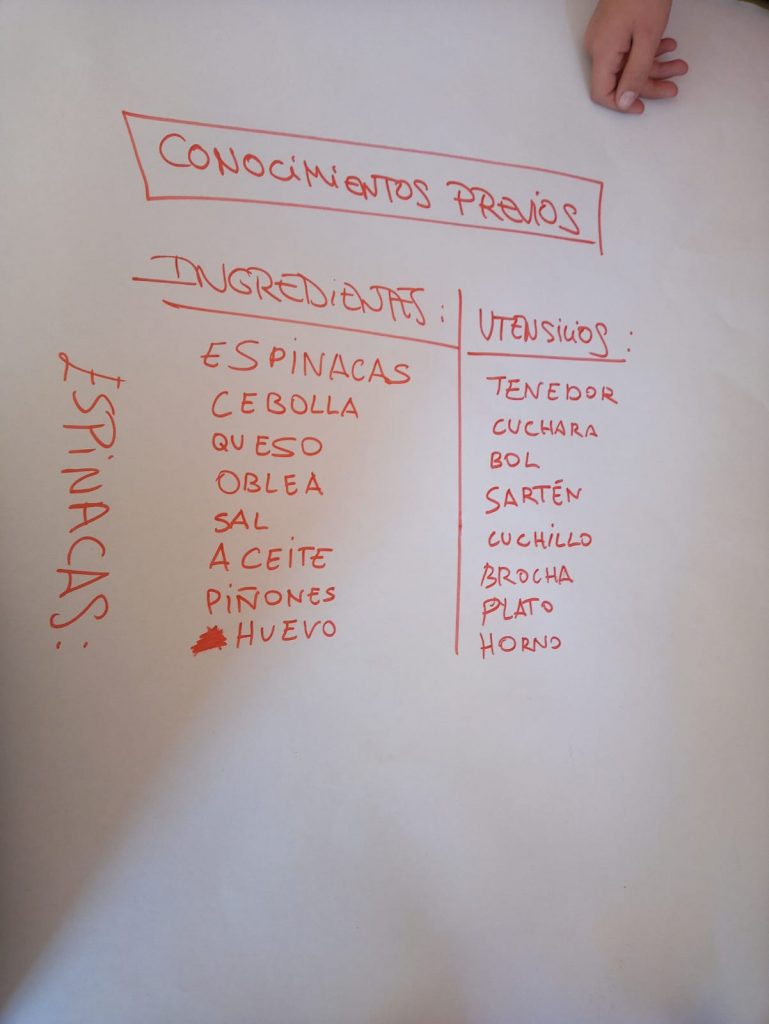 CONOCIMIENTOS PREVIOS
INGREDIENTES:
ESPINACAS
CEBOLLA
QUESO
OBLEA
SAL
ACEITE
PIÑONES
HUEVO
UTENSILIOS:
TENEDOR
CUCHARA
BOL
SARTÉN
CUCHILLO
BROCHA
PLATO
HORNO
ESPINACAS: